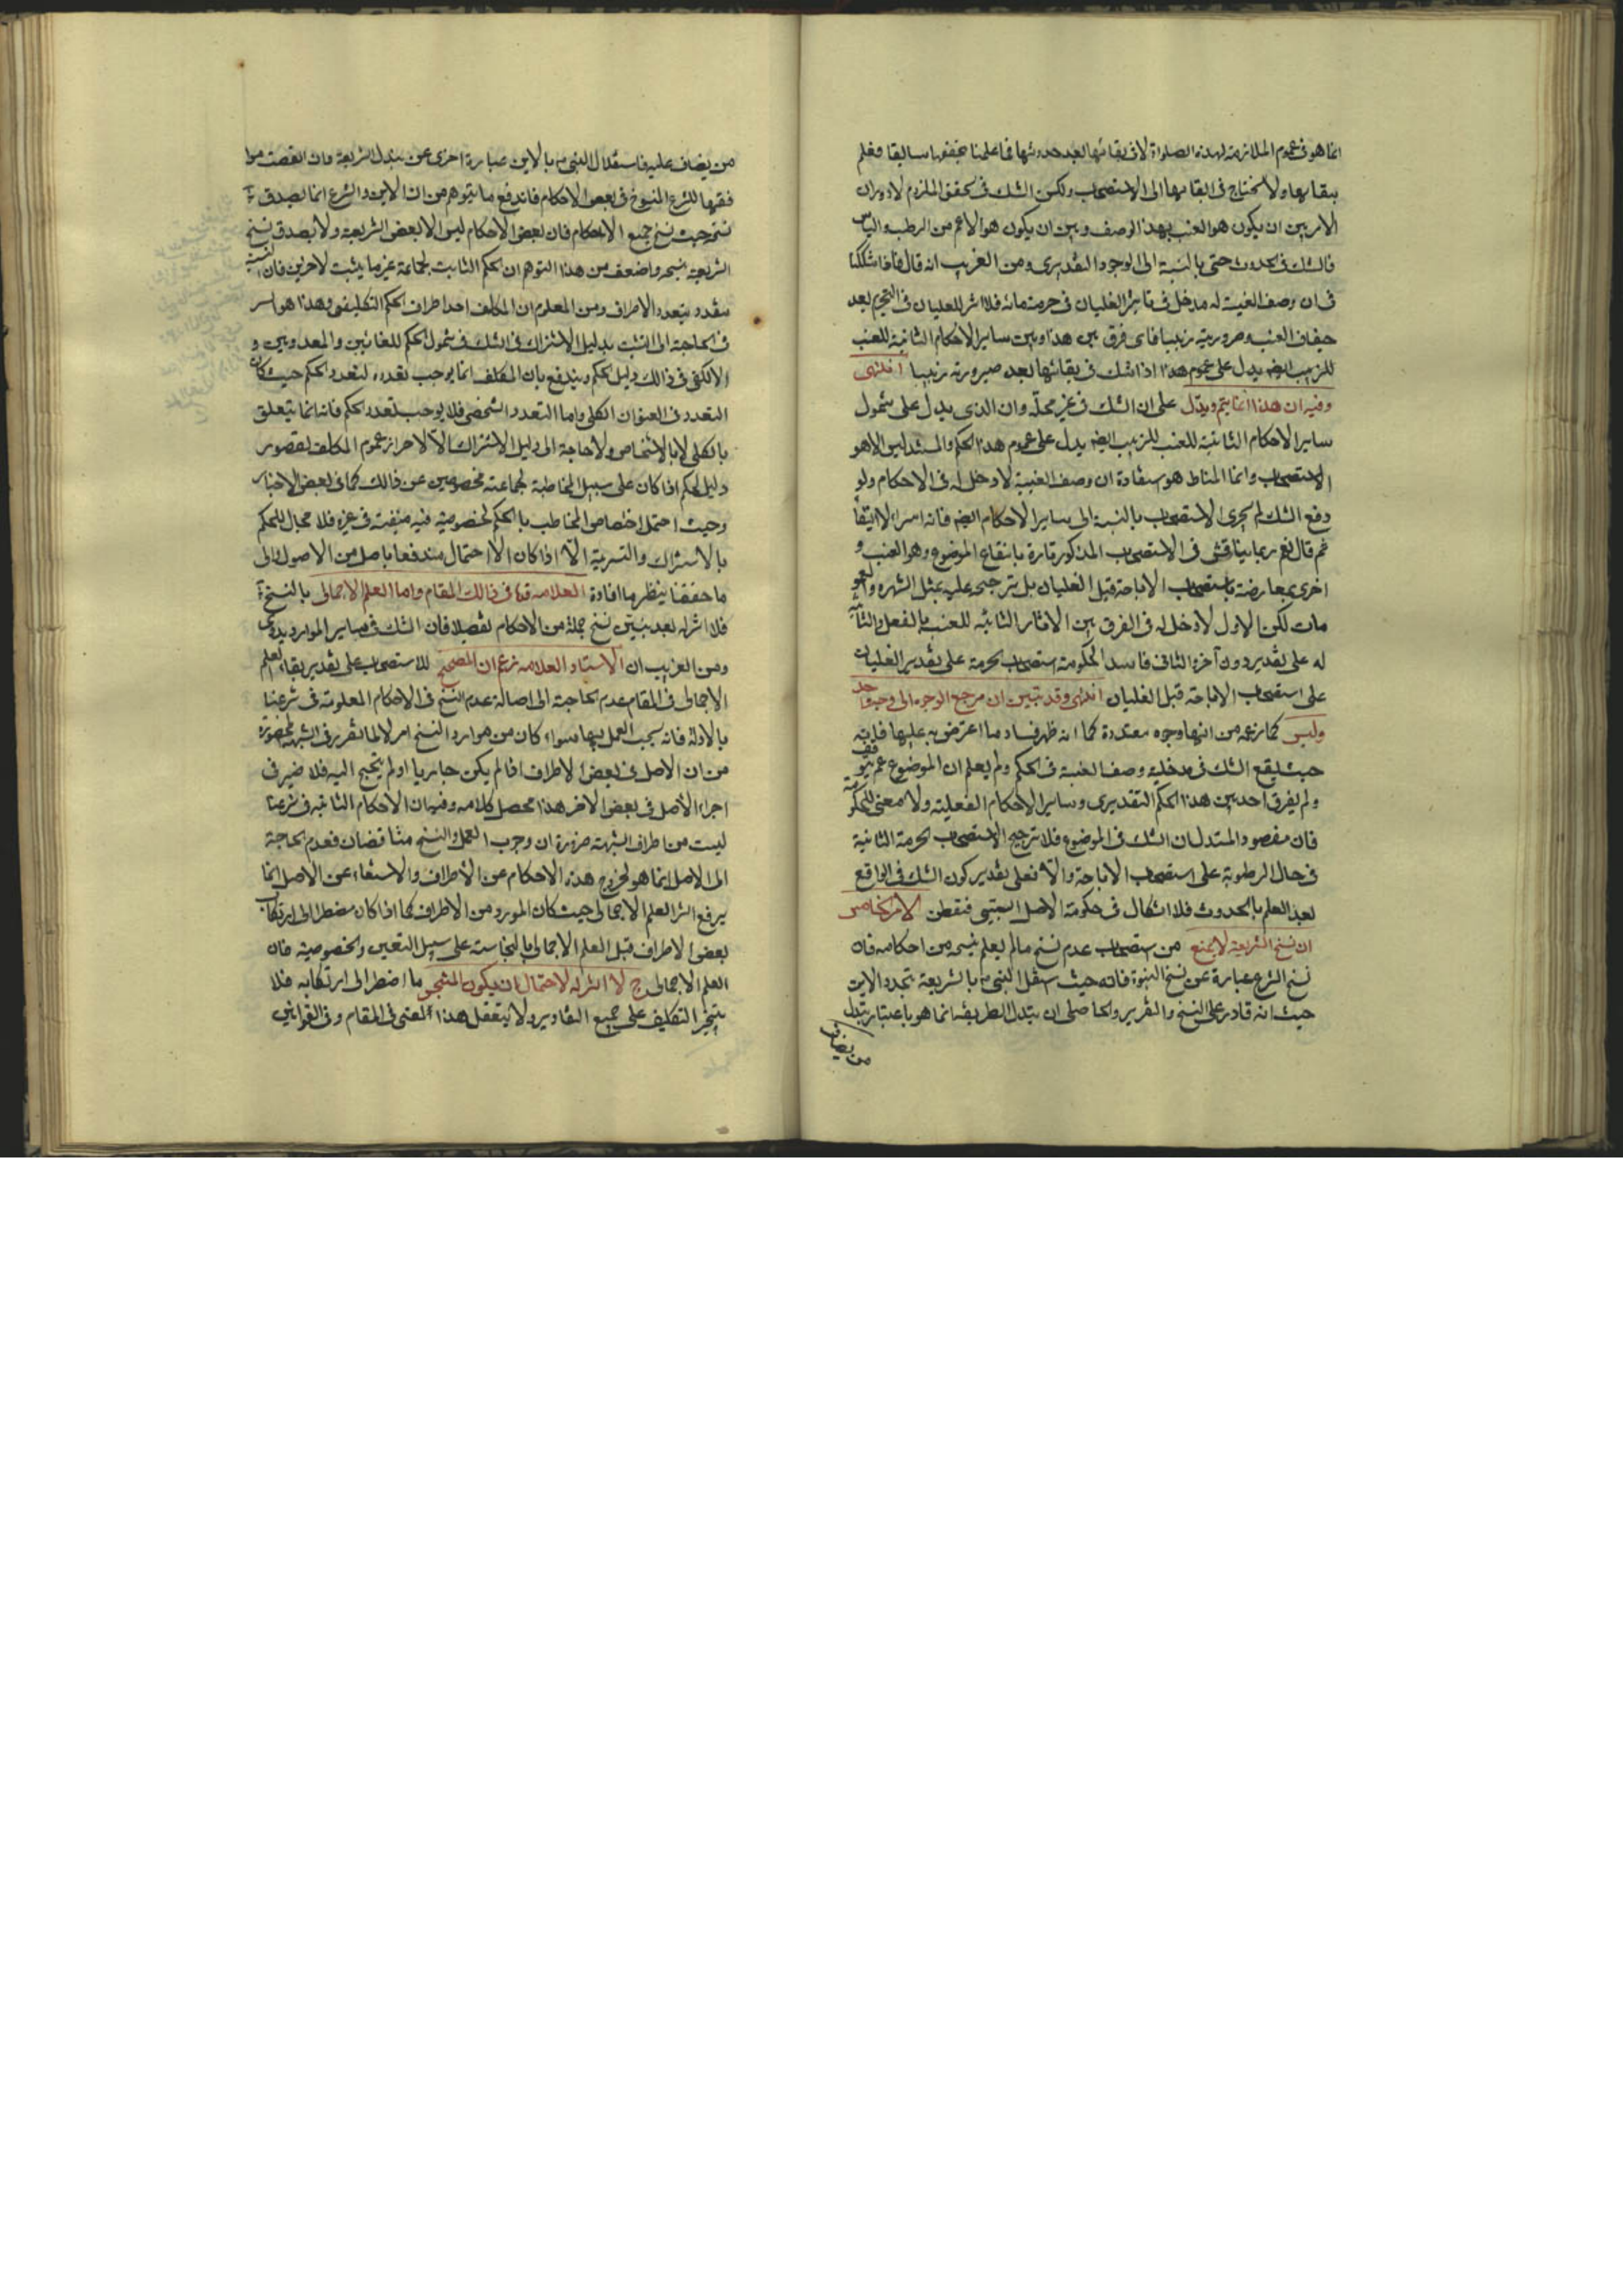 انما هو فى عموم الملازمة لهذه الصلوة لا فى بقائها بعد حدوثها فما علمنا تحققها سابقا فعلم
ببقائها ولا نحتاج فى ابقائها الى الاستصحاب ولكن الشك فى تحقق الملزوم لا دوران
الامر بين ان يكون هو العنب بهذا الوصف وبين ان يكون هو الاعم من الرطب واليابس
فالشك فى الحدوث حتى بالنسبة الى الوجود التقديرى ومن الغريب انه قال فاذا شككنا
فى ان وصف العنبية له مدخل فى تاثير الغليان فى حرمة مائه فلا اثر للغليان فى التحريم بعد
جفاف العنب وصيرورته زبيبا فاى فرق بين هذا وبين ساير الاحكام الثابتة للعنب
للزبيب ايضا يدل على عموم هذا اذا شك فى بقائها بعد صيرورته زبيبا انتهى
وفيه ان هذا انما يتم ويدل على ان الشك فى غير محله وان الذى يدل على شمول
ساير الاحكام الثابتة للعنب للزبيب ايضا يدل على عموم هذا الحكم والمستند ليس الا هو
الاستصحاب وانما المناط هو استفادة ان وصف العنبية لا دخل له فى الاحكام ولو
وقع الشك لم يجرى الاستصحاب بالنسبة الى ساير الاحكام ايضا فانه اسراء لا ابقاء
ثم قال نعم ربما يناقش فى الاستصحاب المذكور تارة بانتفاع الموضوع وهو العنب و
اخرى بمعارضته باستصحاب الاباحة قبل الغليان بل ترجيحه عليه بمثل الشهرة والعمو
مات لكن الاول لا دخل له فى الفرق بين الاثار الثابته للعنب بالفعل والثابتة
له على تقدير دون آخر والثانى فاسد لحكومة استصحاب الحرمة على تقدير الغليان
على استصحاب الاباحة قبل الغليان انتهى وقد تبين ان مرجع الوجوه الى وجه واحد
وليس كما زعمه من انها وجوه متعددة كما انه ظهر فساد ما اعترض به عليها فانه
حيث يقع الشك فى مدخلية وصف العنبية فى الحكم ولم يعلم ان الموضوع عم يتوقف
ولم يفرق احد بين هذا الحكم التقديرى وساير الاحكام الفعلية ولا معنى للحكومة
فان مقصود المستدل ان الشك فى الموضوع فلا ترجيح لاستصحاب الحرمة الثابتة
فى حال الرطوبة على استصحاب الاباحة والا فعلى تقدير كون الشك فى الواقع
بعد العلم بالحدوث فلا اشكال فى حكومة الاصل السببى فتفطن الامر الخامس
ان نسخ الشريعة لا يمنع من استصحاب عدم نسخ ما لم يعلم نسخه من احكامه فان
نسخ الشرع عبارة عن نسخ النبوة فانه حيث استقل النبى بالشريعة تجدد الاين
حيث انه قادر على النسخ والتقرير والحاصل ان تبدل الطريقة انما هو باعتبار تبدل
من يضاف
من يضاف عليه فاستقلال النبى بالاين عبارة اخرى عن تبدل الشريعة وان اتفقت موا
فقتها للشرع المنسوخ فى بعض الاحكام فاندفع ما يتوهم من ان الاين والشرع انما يصدق
نسخه حيث نسخ جميع الاحكام فان بعض الاحكام ليس الا بعض الشريعة ولا يصدق نسخ
الشريعة بنسخه واضعف من هذا التوهم ان الحكم الثابت لجماعة غير ما يثبت لاخرين فان النسبة
تتعدد بتعدد الاطراف ومن المعلوم ان المكلف احد اطراف الحكم التكليفى وهذا هو السر
فى الحاجة الى التشبث بدليل الاشتراك فى الشك فى شمول الحكم للغائبين والمعدومين و
الا لكفى فى ذالك دليل الحكم ويندفع بان المكلف انما يوجب تعدده لتعدد الحكم حيث كان
التعدد فى العنوان الكلى واما التعدد الشخصى فلا يوجب تعدد الحكم فانه انما يتعلق
بالكلى لا بالاشخاص ولا حاجة الى دليل الاشتراك الا لاحراز عموم المكلف لقصور
دليل الحكم اذا كان على سبيل المخاطبة لجماعة مخصوصين عن ذالك كما فى بعض الاخبار
وحيث احتمل اختصاص المخاطب بالحكم لخصوصية فيه منفية فى غيره فلا مجال للحكم
بالاشتراك والتسرية الا اذا كان الاحتمال مندفعا باصل من الاصول والى
ما حققنا ينظر ما افاده العلامه قده فى ذالك المقام واما العلم الاجمالى بالنسخ
فلا اثر له بعد تبين نسخ جملة من الاحكام تفصيلا فان الشك فى ساير الموارد بدوى
ومن الغريب ان الاستاد العلامه زعم ان المصحح للاستصحاب على تقدير بقاء العلم
الاجمالى فى المقام عدم الحاجة الى اصالة عدم النسخ فى الاحكام المعلومة فى شرعنا
بالادلة فانه يجب العمل بها سواء كان من موارد النسخ ام لا لما تقرر فى الشبهة المحصورة
من ان الاصل فى بعض الاطراف اذا لم يكن جاريا او لم يحتج اليه فلا ضير فى
اجراء الاصل فى بعض الاخر هذا محصل كلامه وفيه ان الاحكام الثابته فى شرعنا
ليست من اطراف الشبهة ضرورة ان وجوب العمل والنسخ متناقضان فعدم الحاجة
الى الاصل انما هو لخروج هذه الاحكام عن الاطراف والاستغناء عن الاصل انما
يرفع اثر العلم الاجمالى حيث كان المورد من الاطراف كما اذا كان مضطرا الى ارتكاب
بعض الاطراف قبل العلم الاجمالى بالنجاسة على سبيل التعيين والخصوصية فان
العلم الاجمالى ح لا اثر له لاحتمال ان يكون النجس ما اضطر الى ارتكابه فلا
يتنجز التكليف على جميع التقادير ولا يتعقل هذا المعنى فى المقام وفى القوانين